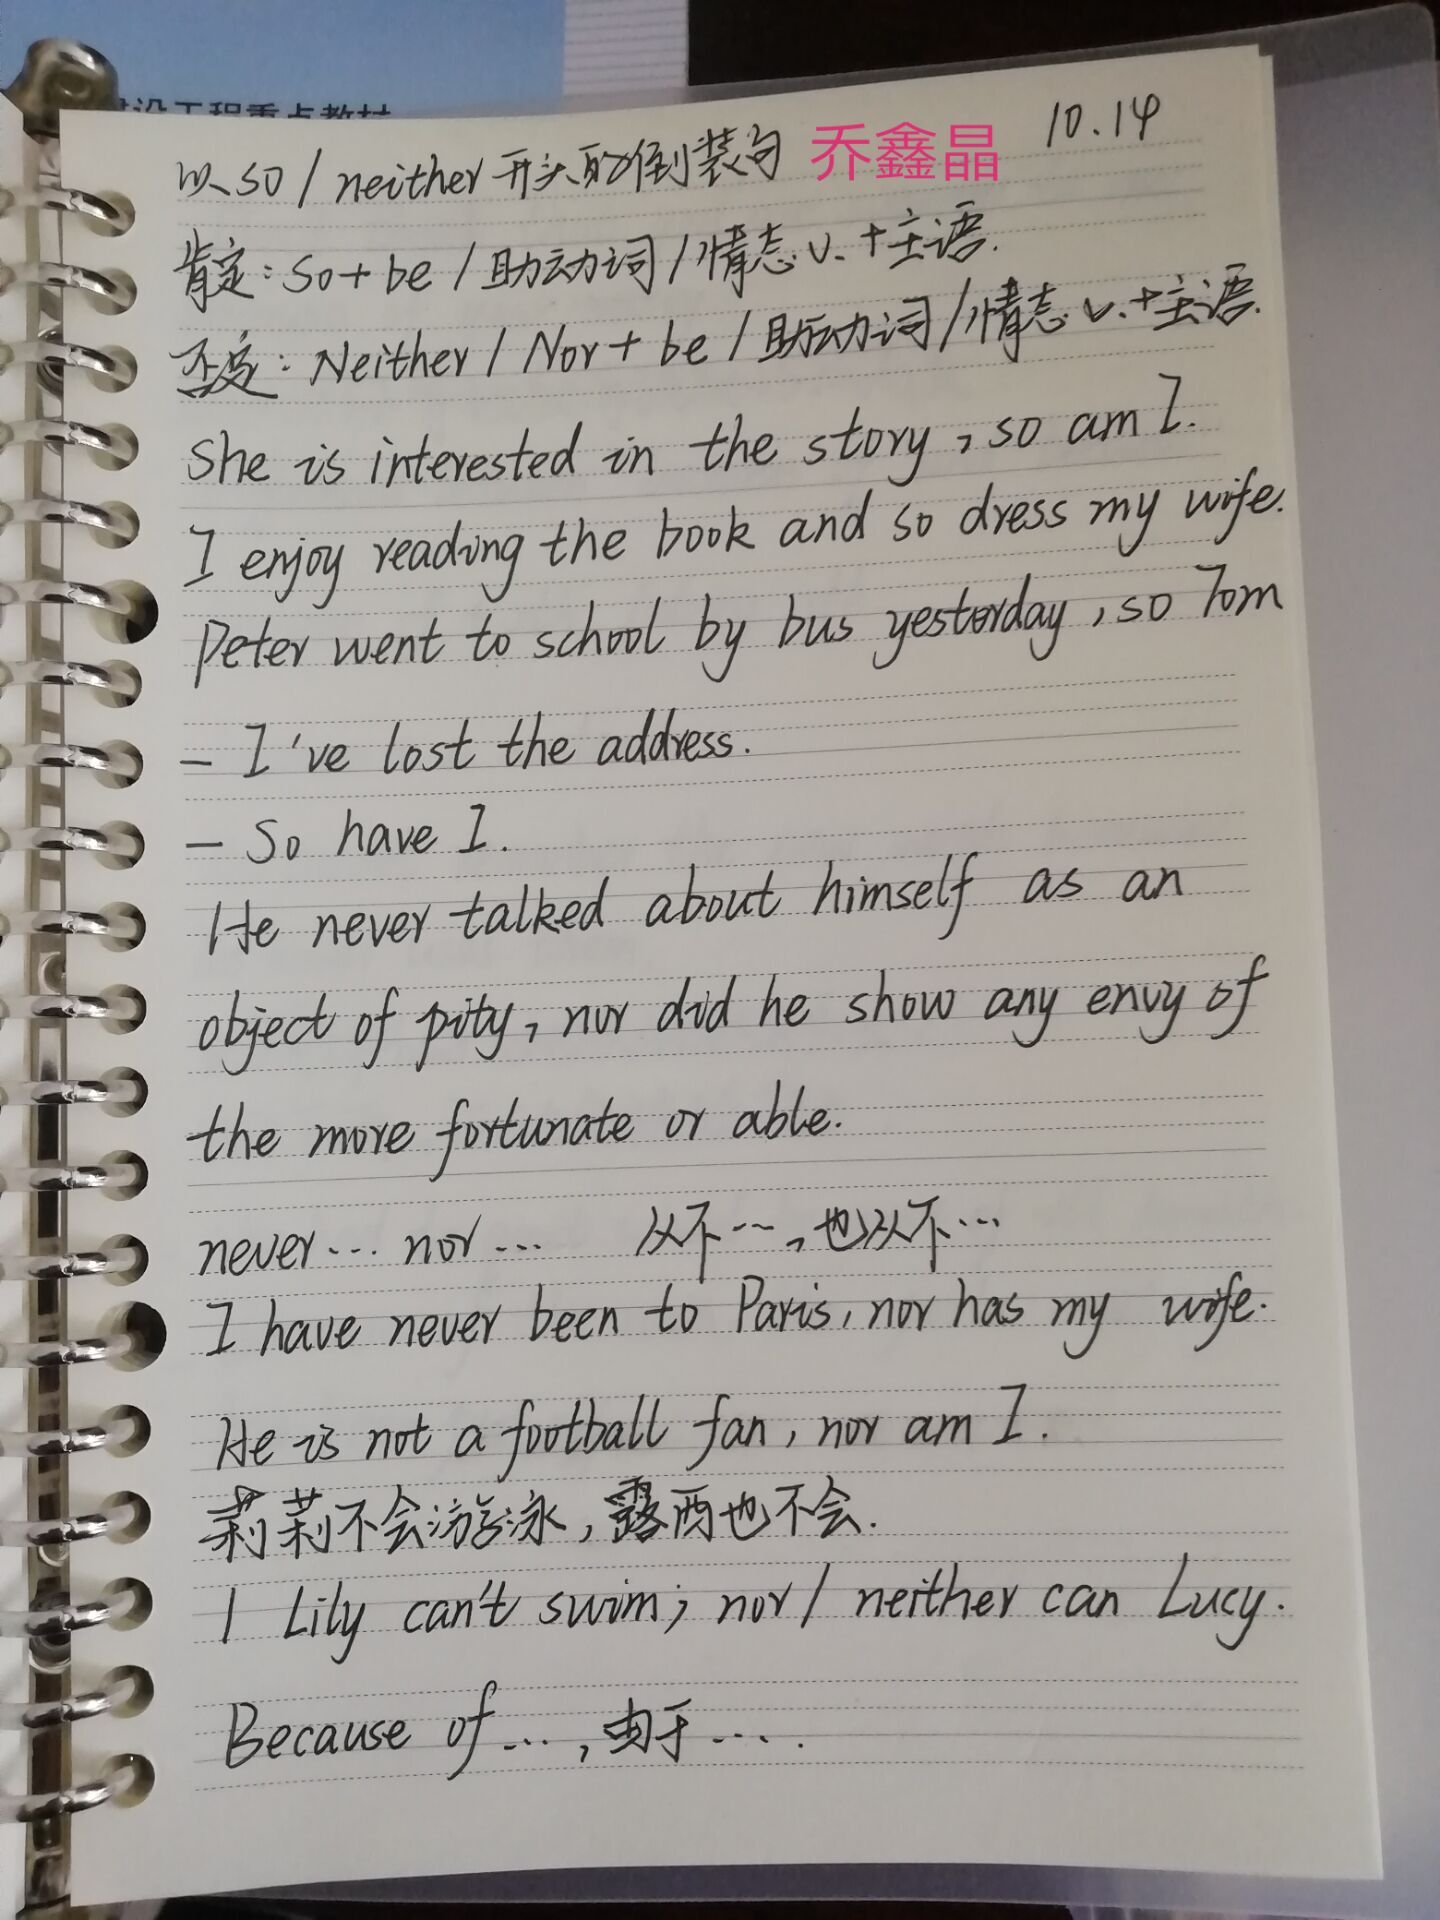 建设工程重点教材
以so / neither 开头的倒装句 乔鑫晶 10.14
肯定: so + be / 助动词 / 情态 v. + 主语.
否定: Neither / Nor + be / 助动词 / 情态 v. + 主语.
She is interested in the story, so am I.
I enjoy reading the book and so dress my wife.
Peter went to school by bus yesterday, so Tom
- I've lost the address.
- So have I.
He never talked about himself as an
object of pity, nor did he show any envy of
the more fortunate or able.
never... nor... 从不..., 也从不...
I have never been to Paris, nor has my wife.
He is not a football fan, nor am I.
莉莉不会游泳, 露西也不会.
1 Lily can't swim; nor / neither can Lucy.
Because of ..., 由于 ....